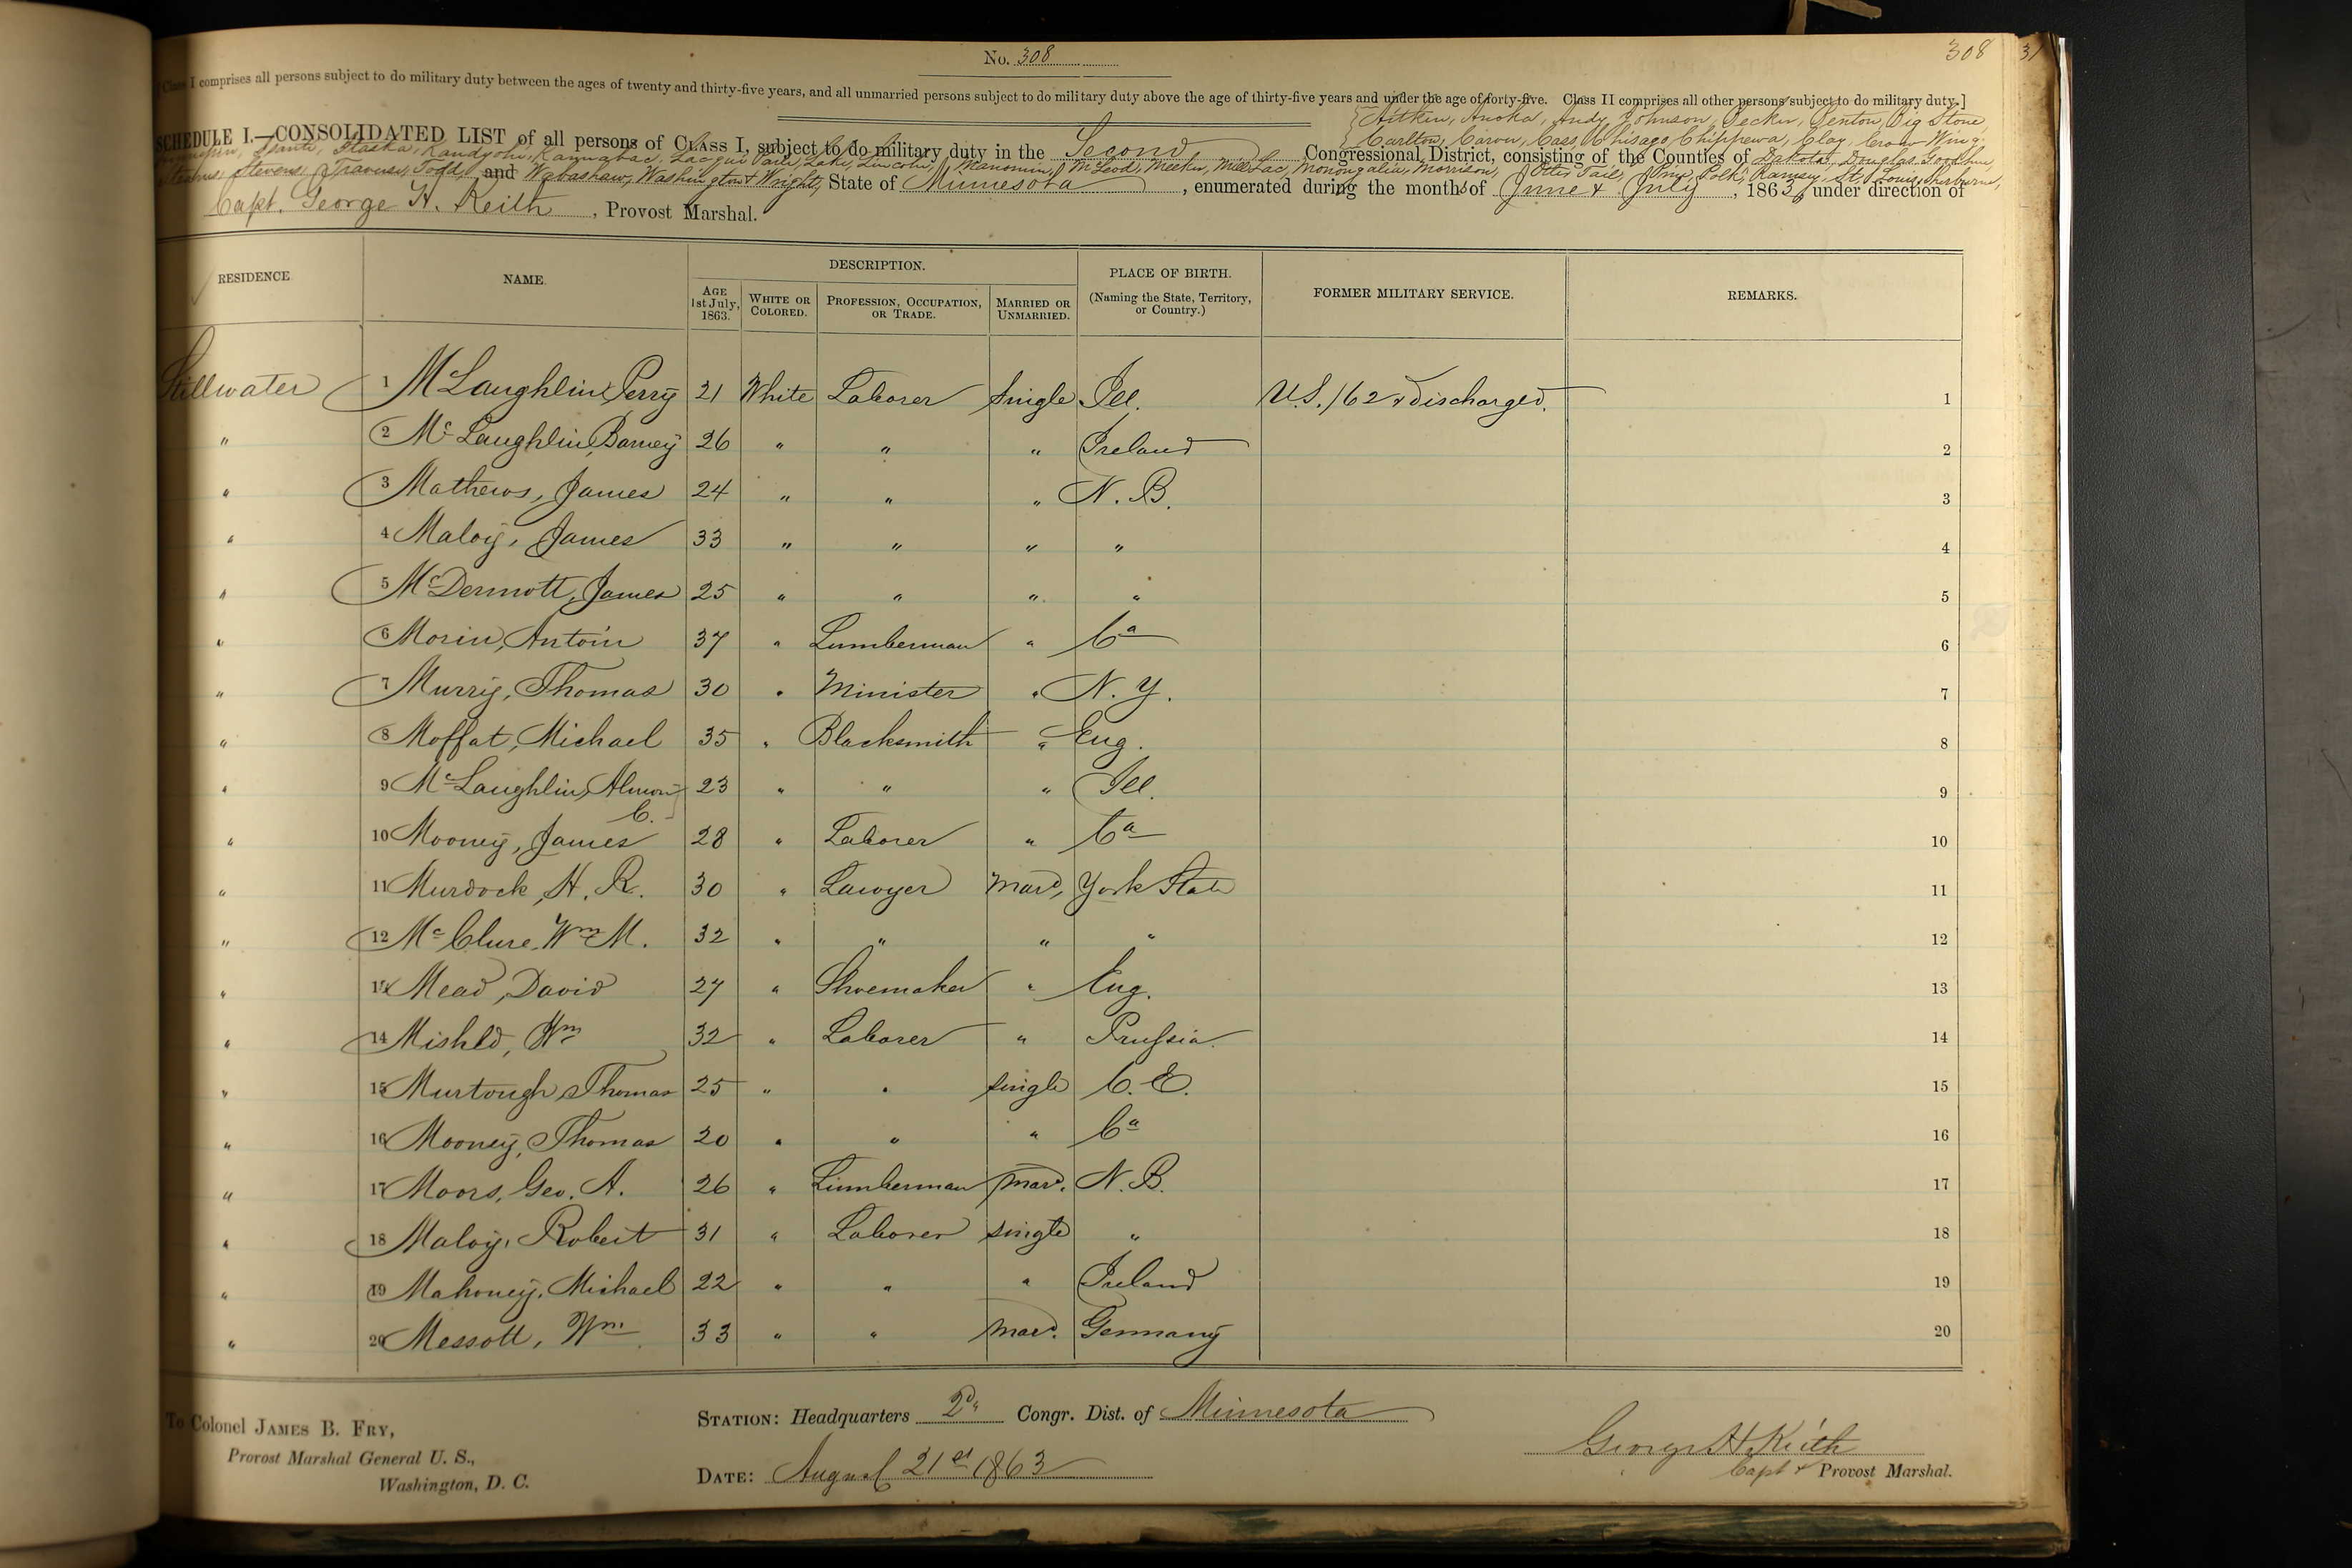 No. 308
308 31
Class I comprises all persons subject to do military duty between the ages of twenty and thirty-five years, and all unmarried persons subject to do military duty above the age of thirty-five years and under the age of forty-five. Class II comprises all other persons subject to do military duty.]
Aitkin, Anoka, Andy Johnson, Becker, Benton, Big Stone
Carlton, Carver, Cass, Chisago, Chippewa, Clay, Crow Wing,
SCHEDULE I.—CONSOLIDATED LIST of all persons of Class I, subject to do military duty in the Second Congressional District, consisting of the Counties of Dakota, Douglas, Goodhue,
Isanti, Itaska, Kandyohi, Kannabac, Lac qui Parle, Lake, Lincoln, Manomin, McLeod, Meeker, Mille Lac, Monongalia, Morrison, Otter Tail, Pine, Polk, Ramsey, St. Louis, Sherburne,
Stearns, Stevens, Traverse, Todd, and Wabashaw, Washington & Wright, State of Minnesota, enumerated during the months of June & July, 1863, under direction of
Capt. George H. Keith, Provost Marshal.
RESIDENCE NAME. DESCRIPTION. PLACE OF BIRTH. (Naming the State, Territory, or Country.) FORMER MILITARY SERVICE. REMARKS.
AGE 1st July, 1863. WHITE OR COLORED. PROFESSION, OCCUPATION, OR TRADE. MARRIED OR UNMARRIED.
Stillwater 1 McLaughlin, Perry 21 White Laborer Single Ill. U.S. /62 & discharged. 1
" 2 McLaughlin, Barney 26 " " " Ireland 2
" 3 Mathews, James 24 " " " N. B. 3
" 4 Maloy, James 33 " " " " 4
" 5 McDermott, James 25 " " " " 5
" 6 Morin, Antoin 37 " Lumberman " Ca 6
" 7 Murry, Thomas 30 " Minister " N. Y. 7
" 8 Moffat, Michael 35 " Blacksmith " Eng. 8
" 9 McLaughlin, Almon C. 23 " " " Ill. 9
" 10 Mooney, James 28 " Laborer " Ca 10
" 11 Murdock, H. R. 30 " Lawyer Mard, York State 11
" 12 McClure, Wm M. 32 " " " " 12
" 13 Mead, David 27 " Shoemaker " Eng. 13
" 14 Misheld, Wm 32 " Laborer " Prussia 14
" 15 Murtough, Thomas 25 " " single C. E. 15
" 16 Mooney, Thomas 20 " " " Ca 16
" 17 Moors, Geo. A. 26 " Lumberman Mard. N. B. 17
" 18 Maloy, Robert 31 " Laborer single " 18
" 19 Mahoney, Michael 22 " " " Ireland 19
" 20 Messott, Wm 33 " " Mard. Germany 20
To Colonel JAMES B. FRY,
Provost Marshal General U. S.,
Washington, D. C.
STATION: Headquarters 2d Congr. Dist. of Minnesota
DATE: August 21st 1863
George H Keith
Capt & Provost Marshal.